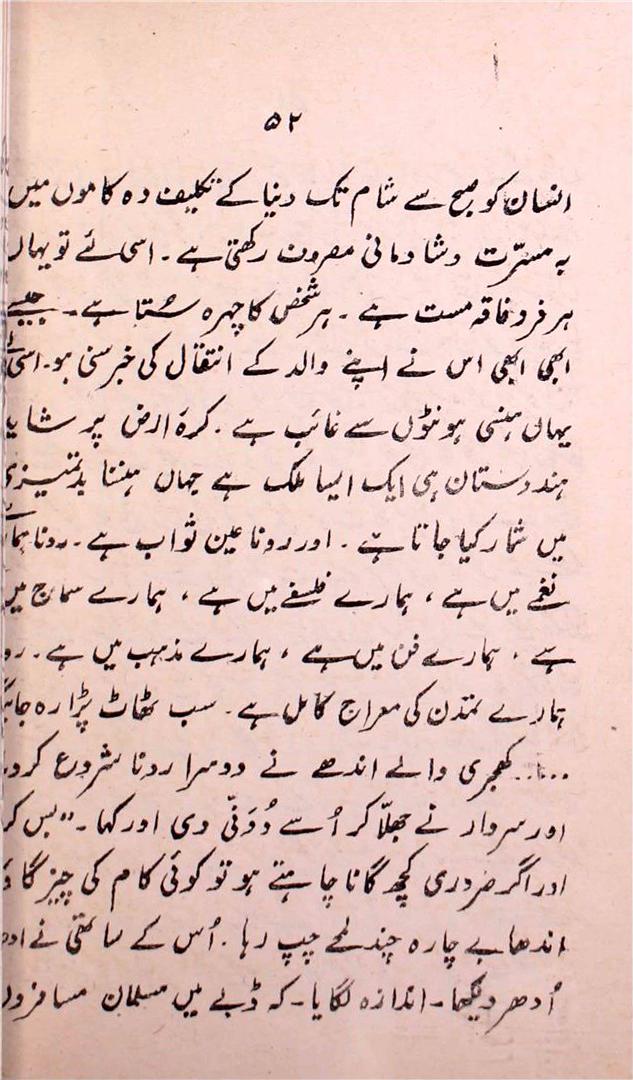 ۵۲
انسان کو صبح سے شام تک دنیا کے تکلیف دہ کاموں میں
بہ مسرّت و شادمانی مصروف رکھتی ہے۔ اسی لئے تو یہاں
ہر فرد فاقہ مست ہے۔ ہر شخص کا چہرہ سُتا ہے۔ جیسے
ابھی ابھی اس نے اپنے والد کے انتقال کی خبر سنی ہو۔ اسی لئے
یہاں ہنسی ہونٹوں سے غائب ہے۔ کرۂ ارض پر شاید
ہندوستان ہی ایک ایسا ملک ہے جہاں ہنسنا بدتمیزی
میں شمار کیا جاتا ہے۔ اور رونا عین ثواب ہے۔ رونا
نغمے میں ہے، ہمارے فلسفے میں ہے، ہمارے سماج میں
ہے، ہمارے فن میں ہے، ہمارے مذہب میں ہے۔
ہمارے تمدن کی معراج کامل ہے۔ سب ٹھاٹ پڑا رہ
..... کھجری والے اندھے نے دوسرا رونا شروع
اور سردار نے جھلّا کر اُسے دُوَنّی دی اور کہا۔ "بس
اور اگر ضروری کچھ گانا چاہتے ہو تو کوئی کام کی چیز
اندھا بے چارہ چند لمحے چپ رہا۔ اُس کے ساتھی نے
اُدھر دیکھا۔ اندازہ لگایا۔ کہ ڈبے میں مسلمان